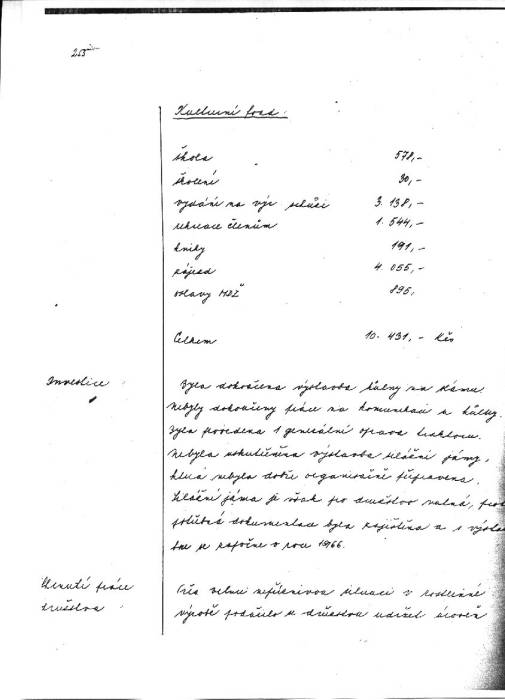 Kulturní fond:
škola 578,-
školení 30,-
vydání na výr. schůzi 3.138,-
rekreace členům 1.544,-
knihy 191,-
zájezd 4.055,-
oslavy MDŽ 895,
Celkem 10.431,- Kčs
Investice
Byla dokončena výstavba kůlny na slámu.
Nebyly dokončeny práce na komunikaci u kůlky.
Byla provedena 1 generální oprava traktoru.
Nebyla uskutečněna výstavba silážní jámy,
která nebyla dobře organisačně připravena.
Silážní jáma je však pro družstvo nutná,
potřebná dokumentace byla zajištěna a s
se započne v roce 1966.
Hlavní práce
družstva
Přes velmi nepříznivou situaci v rostlinné
výrobě podařilo se družstvu udržet úroveň